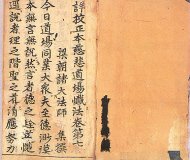 詳校正本慈悲道場懺法卷第七
梁朝諸大法師 集撰
今日道場同業大衆夫至德渺漠
本無言無說然言者德之詮道
說者理之階聖之